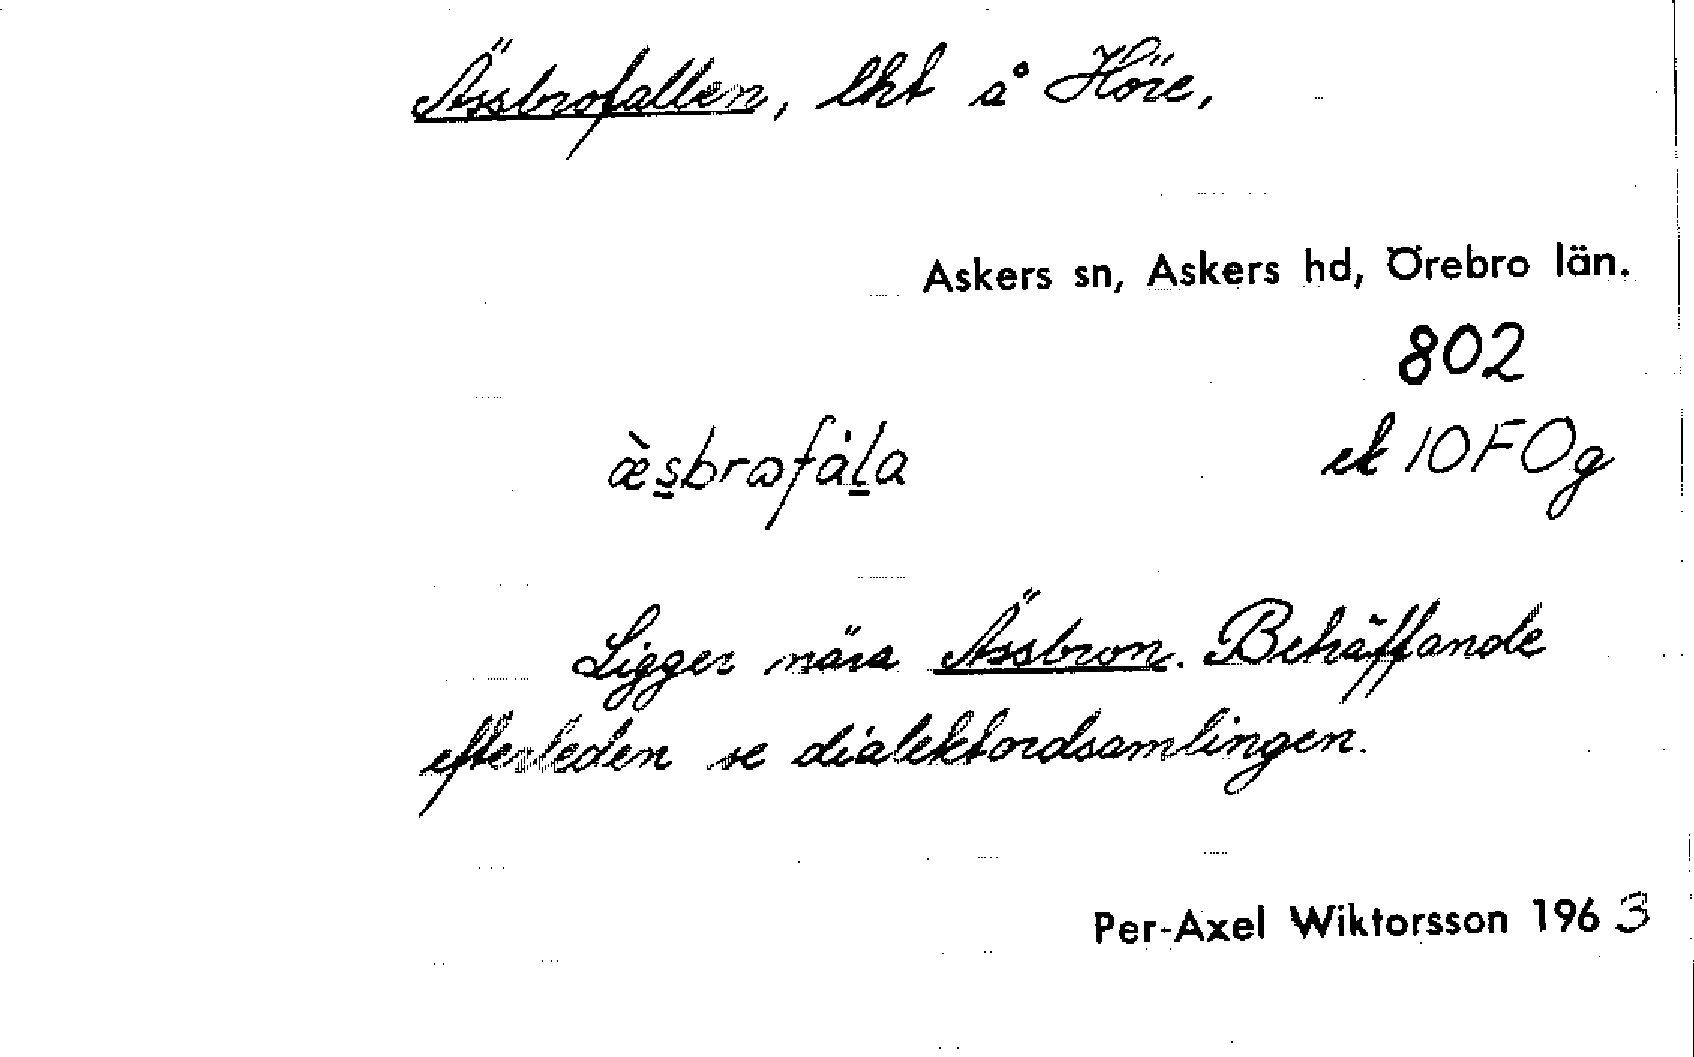 Ässbrofallen, lht å Höre,
Askers sn, Askers hd, Örebro län.
802
æ̀s̠brɷfȧl̠a
ek 10F0g
Ligger nära Ässbron. Behäffande
efterleden se dialektordsamlingen.
Per-Axel Wiktorsson 1963